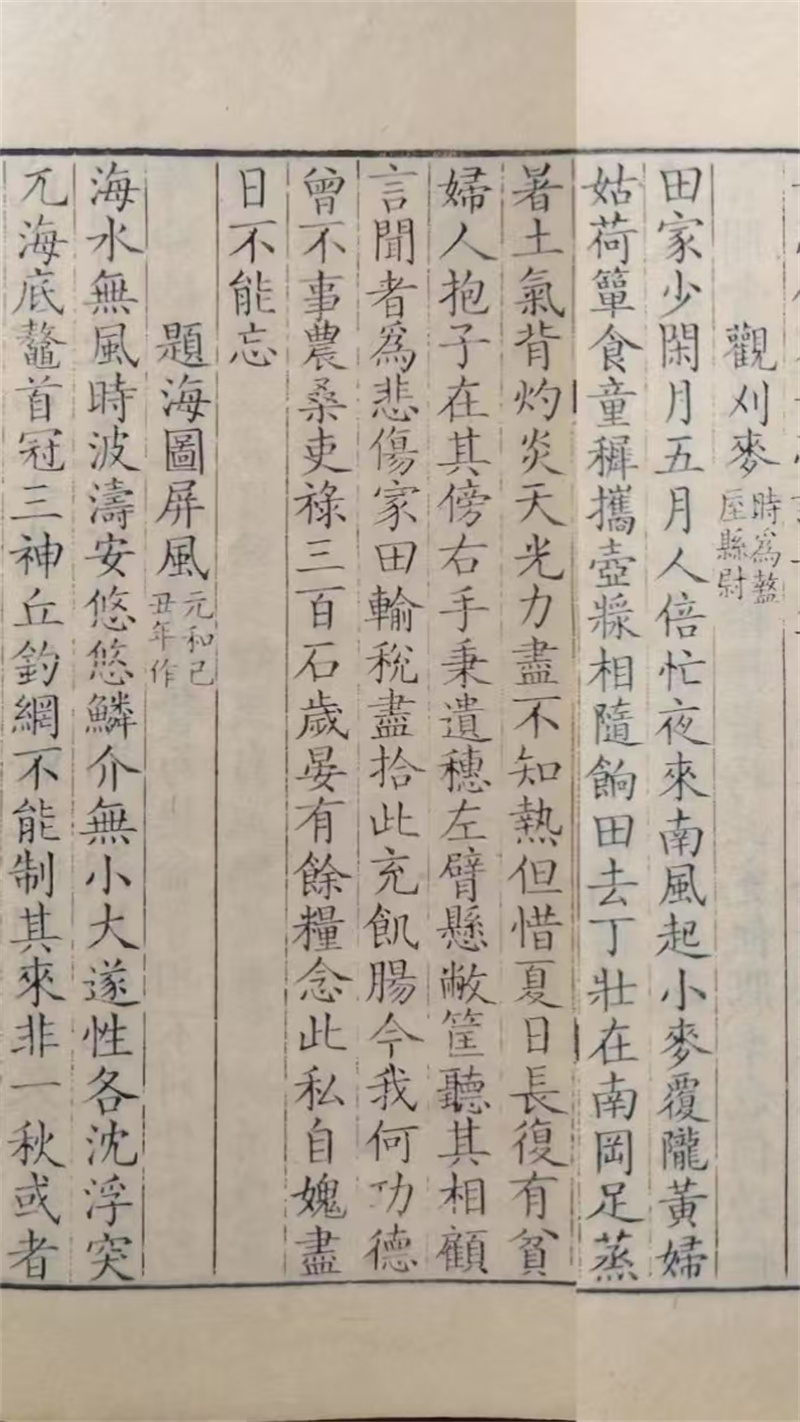 觀刈麥
時爲盩
厔縣尉
田家少閑月五月人倍忙夜來南風起小麥覆隴黃婦
姑荷簞食童穉攜壺漿相隨餉田去丁壯在南岡足蒸
暑土氣背灼炎天光力盡不知熱但惜夏日長復有貧
婦人抱子在其傍右手秉遺穗左臂懸敝筐聽其相顧
言聞者爲悲傷家田輸稅盡拾此充飢腸今我何功德
曾不事農桑吏祿三百石歲晏有餘糧念此私自媿盡
日不能忘
題海圖屏風
元和己
丑年作
海水無風時波濤安悠悠鱗介無小大遂性各沈浮突
兀海底鼇首冠三神丘釣網不能制其來非一秋或者